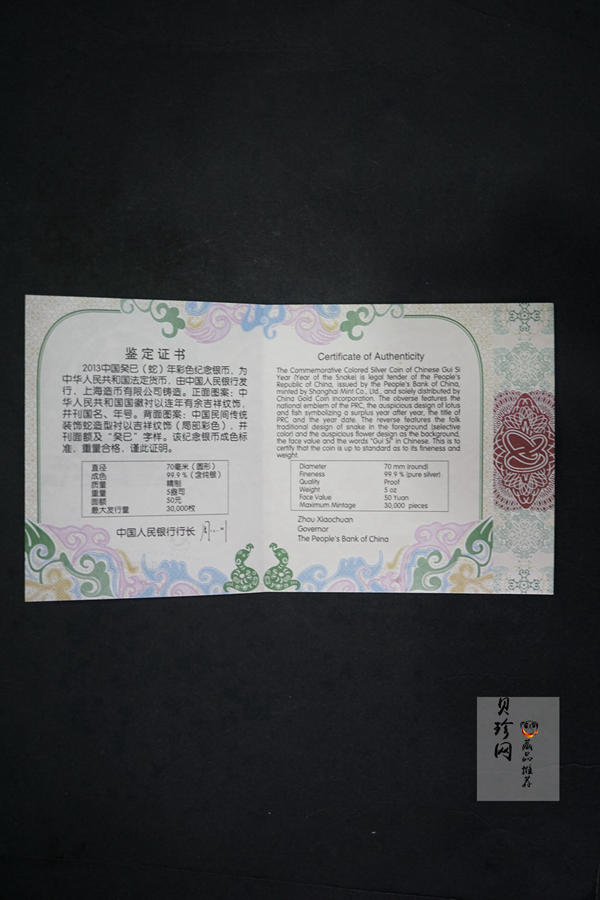 鉴定证书
2013中国癸巳（蛇）年彩色纪念银币，为
中华人民共和国法定货币，由中国人民银行发
行，上海造币有限公司铸造。正面图案：中
华人民共和国国徽衬以连年有余吉祥纹饰，
并刊国名、年号。背面图案：中国民间传统
装饰蛇造型衬以吉祥纹饰（局部彩色），并
刊面额及“癸巳”字样。该纪念银币成色标
准、重量合格，谨此证明。
直径 70毫米（圆形）
成色 99.9％（含纯银）
质量 精制
重量 5盎司
面额 50元
最大发行量 30,000枚
中国人民银行行长
Certificate of Authenticity
The Commemorative Colored Silver Coin of Chinese Gui Si
Year (Year of the Snake) is legal tender of the People's
Republic of China, issued by the People's Bank of China,
minted by Shanghai Mint Co., Ltd., and solely distributed by
China Gold Coin Incorporation. The obverse features the
national emblem of the PRC, the auspicious design of lotus
and fish symbolizing a surplus year after year, the title of
PRC and the year date. The reverse features the folk
traditional design of snake in the foreground (selective
color) and the auspicious flower design as the background,
the face value and the words "Gui Si" in Chinese. This is to
certify that the coin is up to standard as to its fineness and
weight.
Diameter 70 mm (round)
Fineness 99.9 % (pure silver)
Quality Proof
Weight 5 oz
Face Value 50 Yuan
Maximum Mintage 30,000 pieces
Zhou Xiaochuan
Governor
The People's Bank of China
贝珍网
藏品推荐